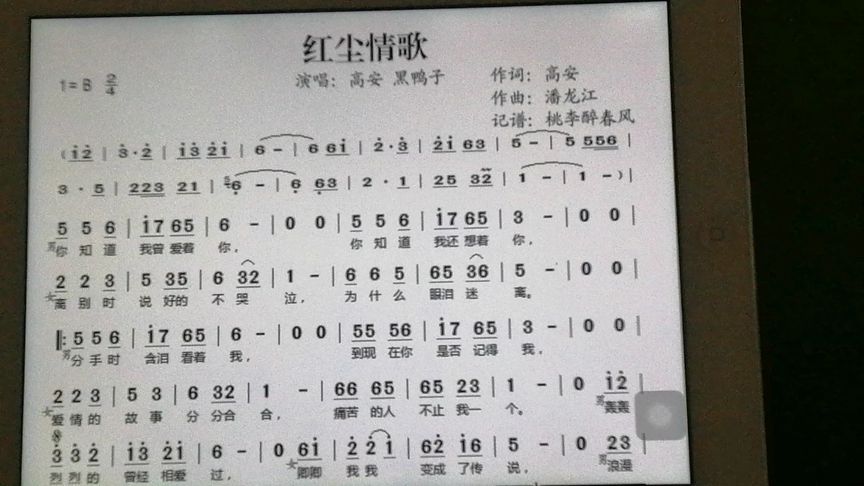 红尘情歌
1=B 2/4
演唱：高安 黑鸭子
作词：高安
作曲：潘龙江
记谱：桃李醉春风
( i̇2̇ | 3̇·2̇ | i̇3̇ 2̇i̇ | 6 - | 6 6i̇ | 2̇·3̇ | 2̇i̇ 63 | 5 - | 5 556 |
3·5 | 2223 21 | 6̣ - | 6̣ 6̣3 | 2·1 | 25 32 | 1 - | 1 -) |
5 5 6 | i̇7 65 | 6 - | 0 0 | 5 5 6 | i̇7 65 | 3 - | 0 0 |
男你 知 道 我曾 爱着 你， 你 知 道 我还 想着 你，
2 2 3 | 5 35 | 6 32 | 1 - | 6 6 5 | 65 36 | 5 - | 0 0 |
女离 别 时 说 好的 不 哭 泣， 为 什 么 眼泪 迷 离。
‖: 5 5 6 | i̇7 65 | 6 - | 0 0 | 55 56 | i̇7 65 | 3 - | 0 0 |
男分 手 时 含泪 看着 我， 到现 在你 是否 记得 我，
2 2 3 | 5 3 | 6 32 | 1 - | 66 65 | 65 23 | 1 - | 0 i̇2̇ |
女爱 情 的 故 事 分 分合 合， 痛苦 的人 不止 我一 个。 男轰轰
3̇ 3̇ 2̇ | i̇3̇ 2̇i̇ | 6 - | 0 6i̇ | 2̇ 2̇ i̇ | 62̇ i̇6 | 5 - | 0 23 |
烈 烈 的 曾经 相爱 过， 女卿卿 我 我 变成 了传 说， 男浪漫